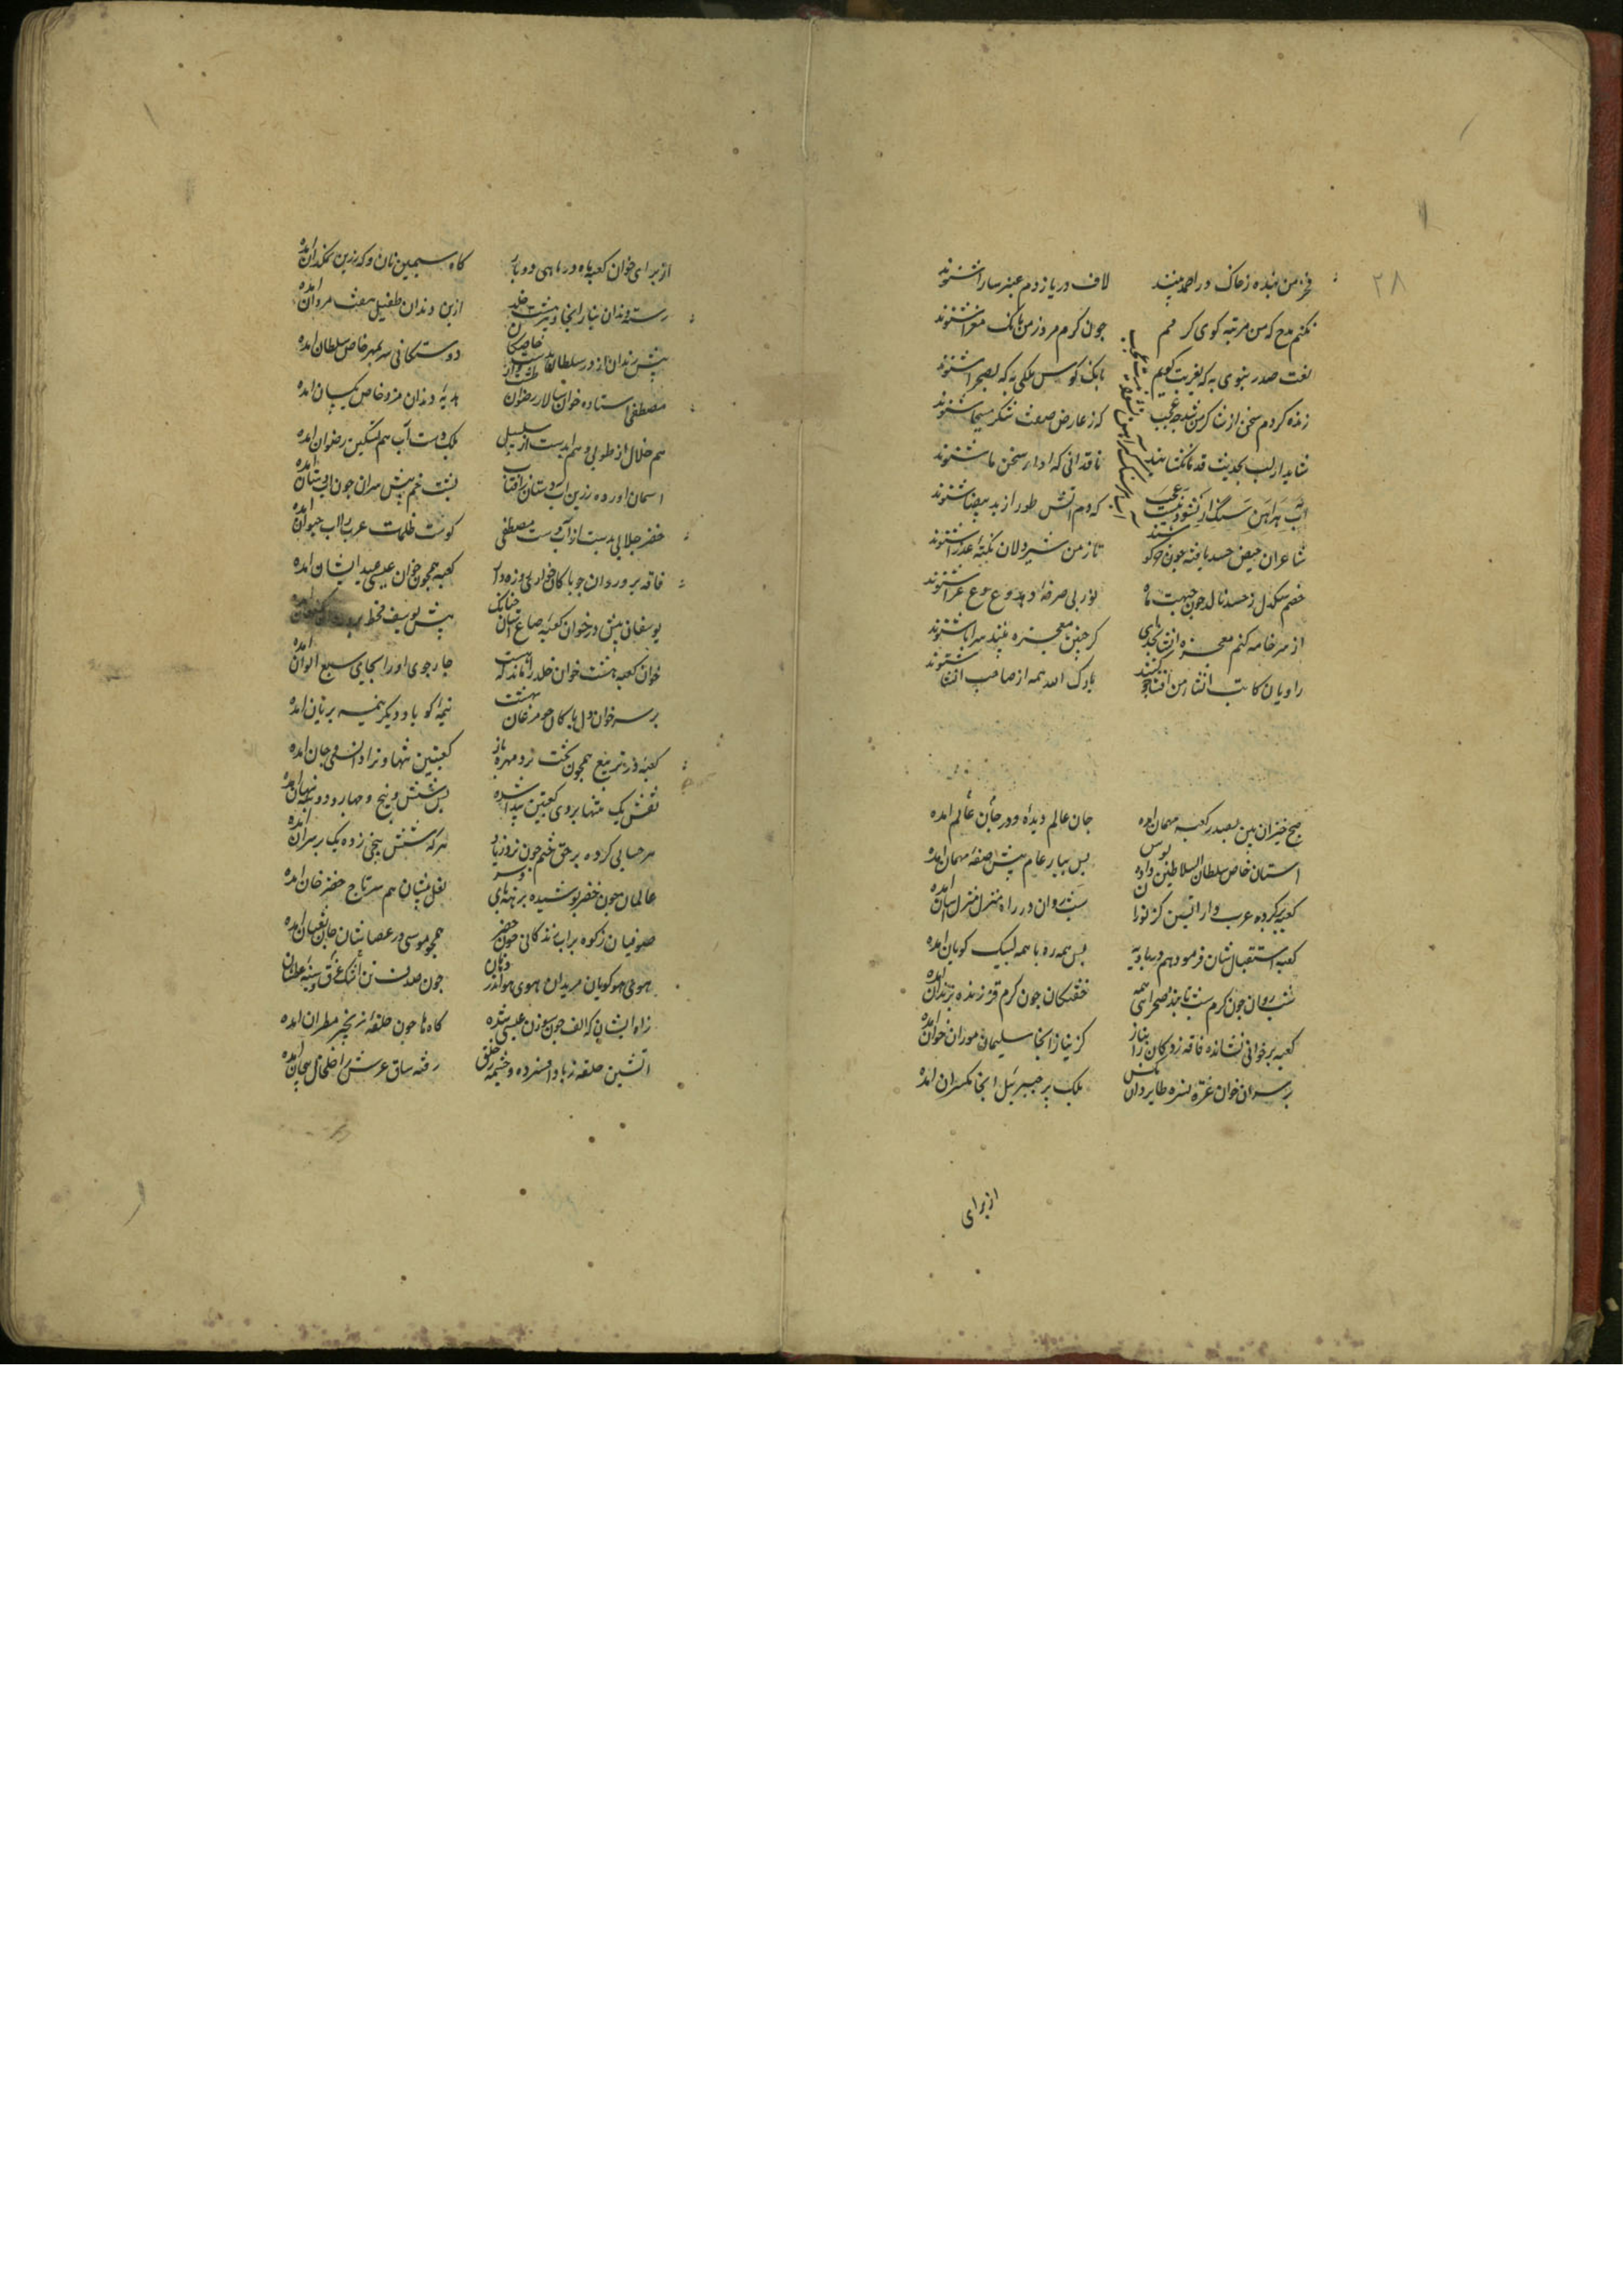 ۲۸
فخر من بنده ز خاک در احمد بینند لاف دریا ز دم عنبر سارا شنوند
نکنم مدح که من مرثیه گوی کرمم چون کرم مرد ز من بانک معزا شنوند
نعت صدر نبوی به که بغربت گویم بانک کوس ملکی به که بصحرا شنوند
زنده کردم سخن ار شاکر من شد چه عجب که ز عارض صفت شکر مسیحا شنوند
شاید ار لب بحدیث قدما نکشایند ناقدانی که ادای سخن ما شنوند
که دم آتش طور از ید بیضا شنوند
شاعران حیض حسد یافته چون خرکوشند تا ز من شیردلان نکته عذرا شنوند
خصم سکدل ز حسد نالد چون جبهت ماه نور بی صرفه دهد وع وع عوا شنوند
از سر خامه کنم معجزه انشا بخدای کر چنین معجزه بینند سرا یا شنوند
راویان کایت انشاء من انشا کنند بارک الله همه از صاحب انشا شنوند
صبح خیزان بین بصدر کعبه مهمان آمده جان عالم دیده و در جان عالم آمده
آستان خاص سلطان السلاطین داده بوس پس ببار عام پیش صفه مهمان آمده
کعبه برکرده عرب وار آتشین کز نور آن شب روان در راه منزل منزل آسان آمده
کعبه استقبال شان فرموده هم در بادیه پس همه ره با همه لبیک کویان آمده
شب روان چون کرم شب تابند صحرایی همه خفتکان چون کرم قز زنده بزندان آمده
کعبه بر خوانی نشانده فاقه زدکان را بناز کز نیاز آنجا سلیمان مور آن خوان آمده
بر سر آن خوان عزت نسر طایر دان مکس بلک پر جبرئیل آنجا مکس ران آمده
از برای
از برای خوان کعبه ماه در ماهی دو بار کاه سیمین نان و که زرین نمکدان آمده
رسته دندان نیاز آنجا و بر هشت خلد از بن دندان طفیل هفت مردان آمده
پیش دندان از در سلطان بدست خاصکان دوستکانی سر بمهر خاص سلطان آمده
مصطفی استاده خوان سالار و رضوان طشت دار هدیه دندان مزد خاص یکسان آمده
هم خلال از طوبی و هم آبدست از سلسبیل بلک دست آب هم تسکین رضوان آمده
آسمان آورده زرین آب دستان ز آفتاب پشت خم پیش سران چون آب دستان آمده
خضر جلابی بدست از آب دست مصطفی کوست ظلمات عرب را آب حیوان آمده
فاقه پروردان چو پاکان حواری روزه دار کعبه همچون خوان عیسی عید ایشان آمده
یوسفان بیش در خوان کعبه صاع شان چنانک پیش یوسف قحط
خوان کعبه هشت خوان خلد را ماند که هست چارجوی او را بجای سبع الوان آمده
بر سر خوان دل پاکان چو مرغان بهشت نیمه کویا و دیکر نیمه بریان آمده
کعبه در تربیع همچون تخت نرد مهره باز کعبتین تنها و نراد انسی و جان آمده
نقش یک تنها بروی کعبتین پیدا شده پس شش و پنج و چهار و دو پنهان آمده
هر حسابی کرده بر حق ختم چون نرد زیاد هر که شش پنجی زده یک بر سر آن آمده
عالمان چون خضر پوشیده برهنه پای و سر نعل پیشان هم سر تاج خضر خان آمده
صوفیان رکوه پر آب زندکانی چون خضر همچو موسی در عصاشان جان ثعبان آمده
هوی هو کویان مریدان هوی هو اندر دهان چون صدف تن اشک غرق و سینه عطشان
زاه ایشان که الف چون سوزن عیسی شده کاه ها چون حلقه زنجیر مطران آمده
آتشین حلقه ز باد افسرده و جسته ز حلق رفته ساق عرش را خلخال پیچان آمده